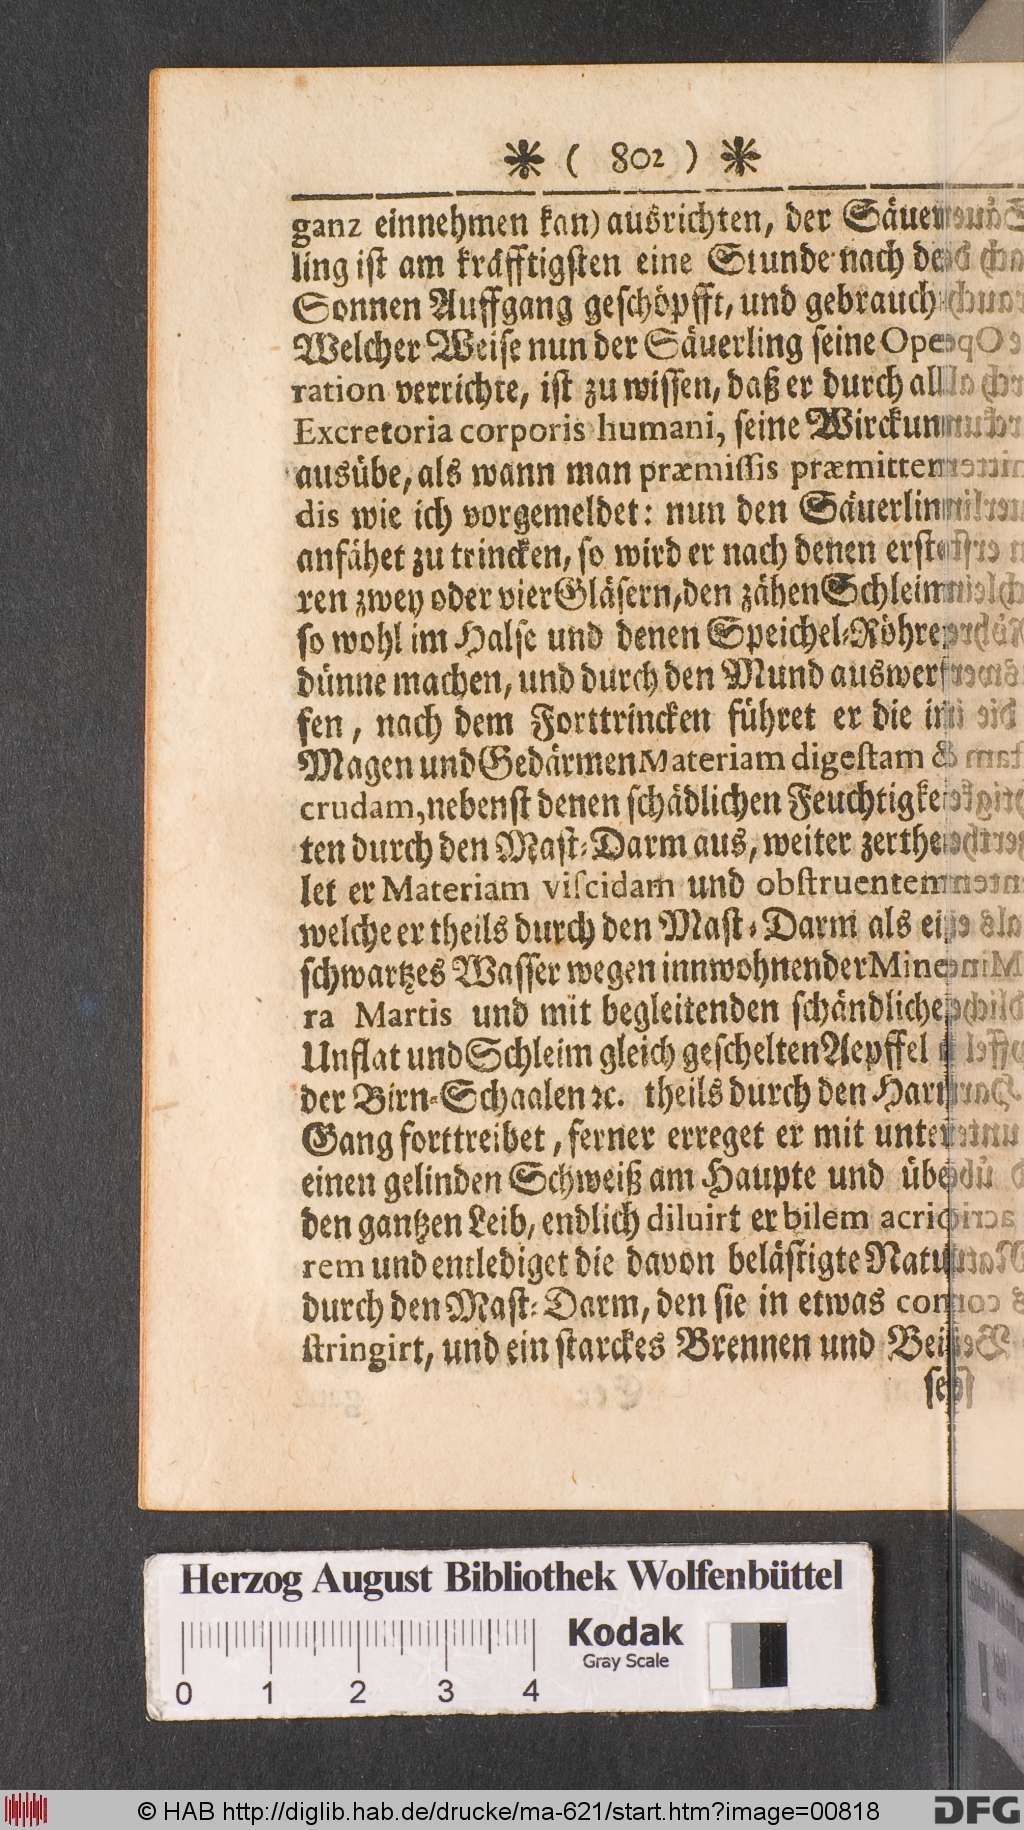 * ( 802 ) *
ganz einnehmen kan) ausrichten, der Säuer
ling ist am kräfftigsten eine Stunde nach de
Sonnen Auffgang geschöpfft, und gebrauch
Welcher Weise nun der Säuerling seine Ope
ration verrichte, ist zu wissen, daß er durch all
Excretoria corporis humani, seine Wirckun
ausübe, als wann man præmissis præmitten
dis wie ich vorgemeldet: nun den Säuerlin
anfähet zu trincken, so wird er nach denen erste
ren zwey oder vier Gläsern, den zähen Schleim
so wohl im Halse und denen Speichel-Röhre
dünne machen, und durch den Mund auswerf
fen, nach dem Forttrincken führet er die im
Magen und Gedärmen Materiam digestam &
crudam, nebenst denen schädlichen Feuchtigkei
ten durch den Mast-Darm aus, weiter zerthei
let er Materiam viscidam und obstruentem
welche er theils durch den Mast-Darm als ein
schwartzes Wasser wegen innwohnender Mine
ra Martis und mit begleitenden schändliche
Unflat und Schleim gleich geschelten Aepffel
der Birn-Schaalen ꝛc. theils durch den Harn
Gang forttreibet, ferner erreget er mit unter
einen gelinden Schweiß am Haupte und über
den gantzen Leib, endlich diluirt er bilem acrio
rem und entlediget die davon belästigte Natur
durch den Mast-Darm, den sie in etwas con
stringirt, und ein starckes Brennen und Bei
sen
Herzog August Bibliothek Wolfenbüttel
Kodak
Gray Scale
0 1 2 3 4
© HAB http://diglib.hab.de/drucke/ma-621/start.htm?image=00818
DFG